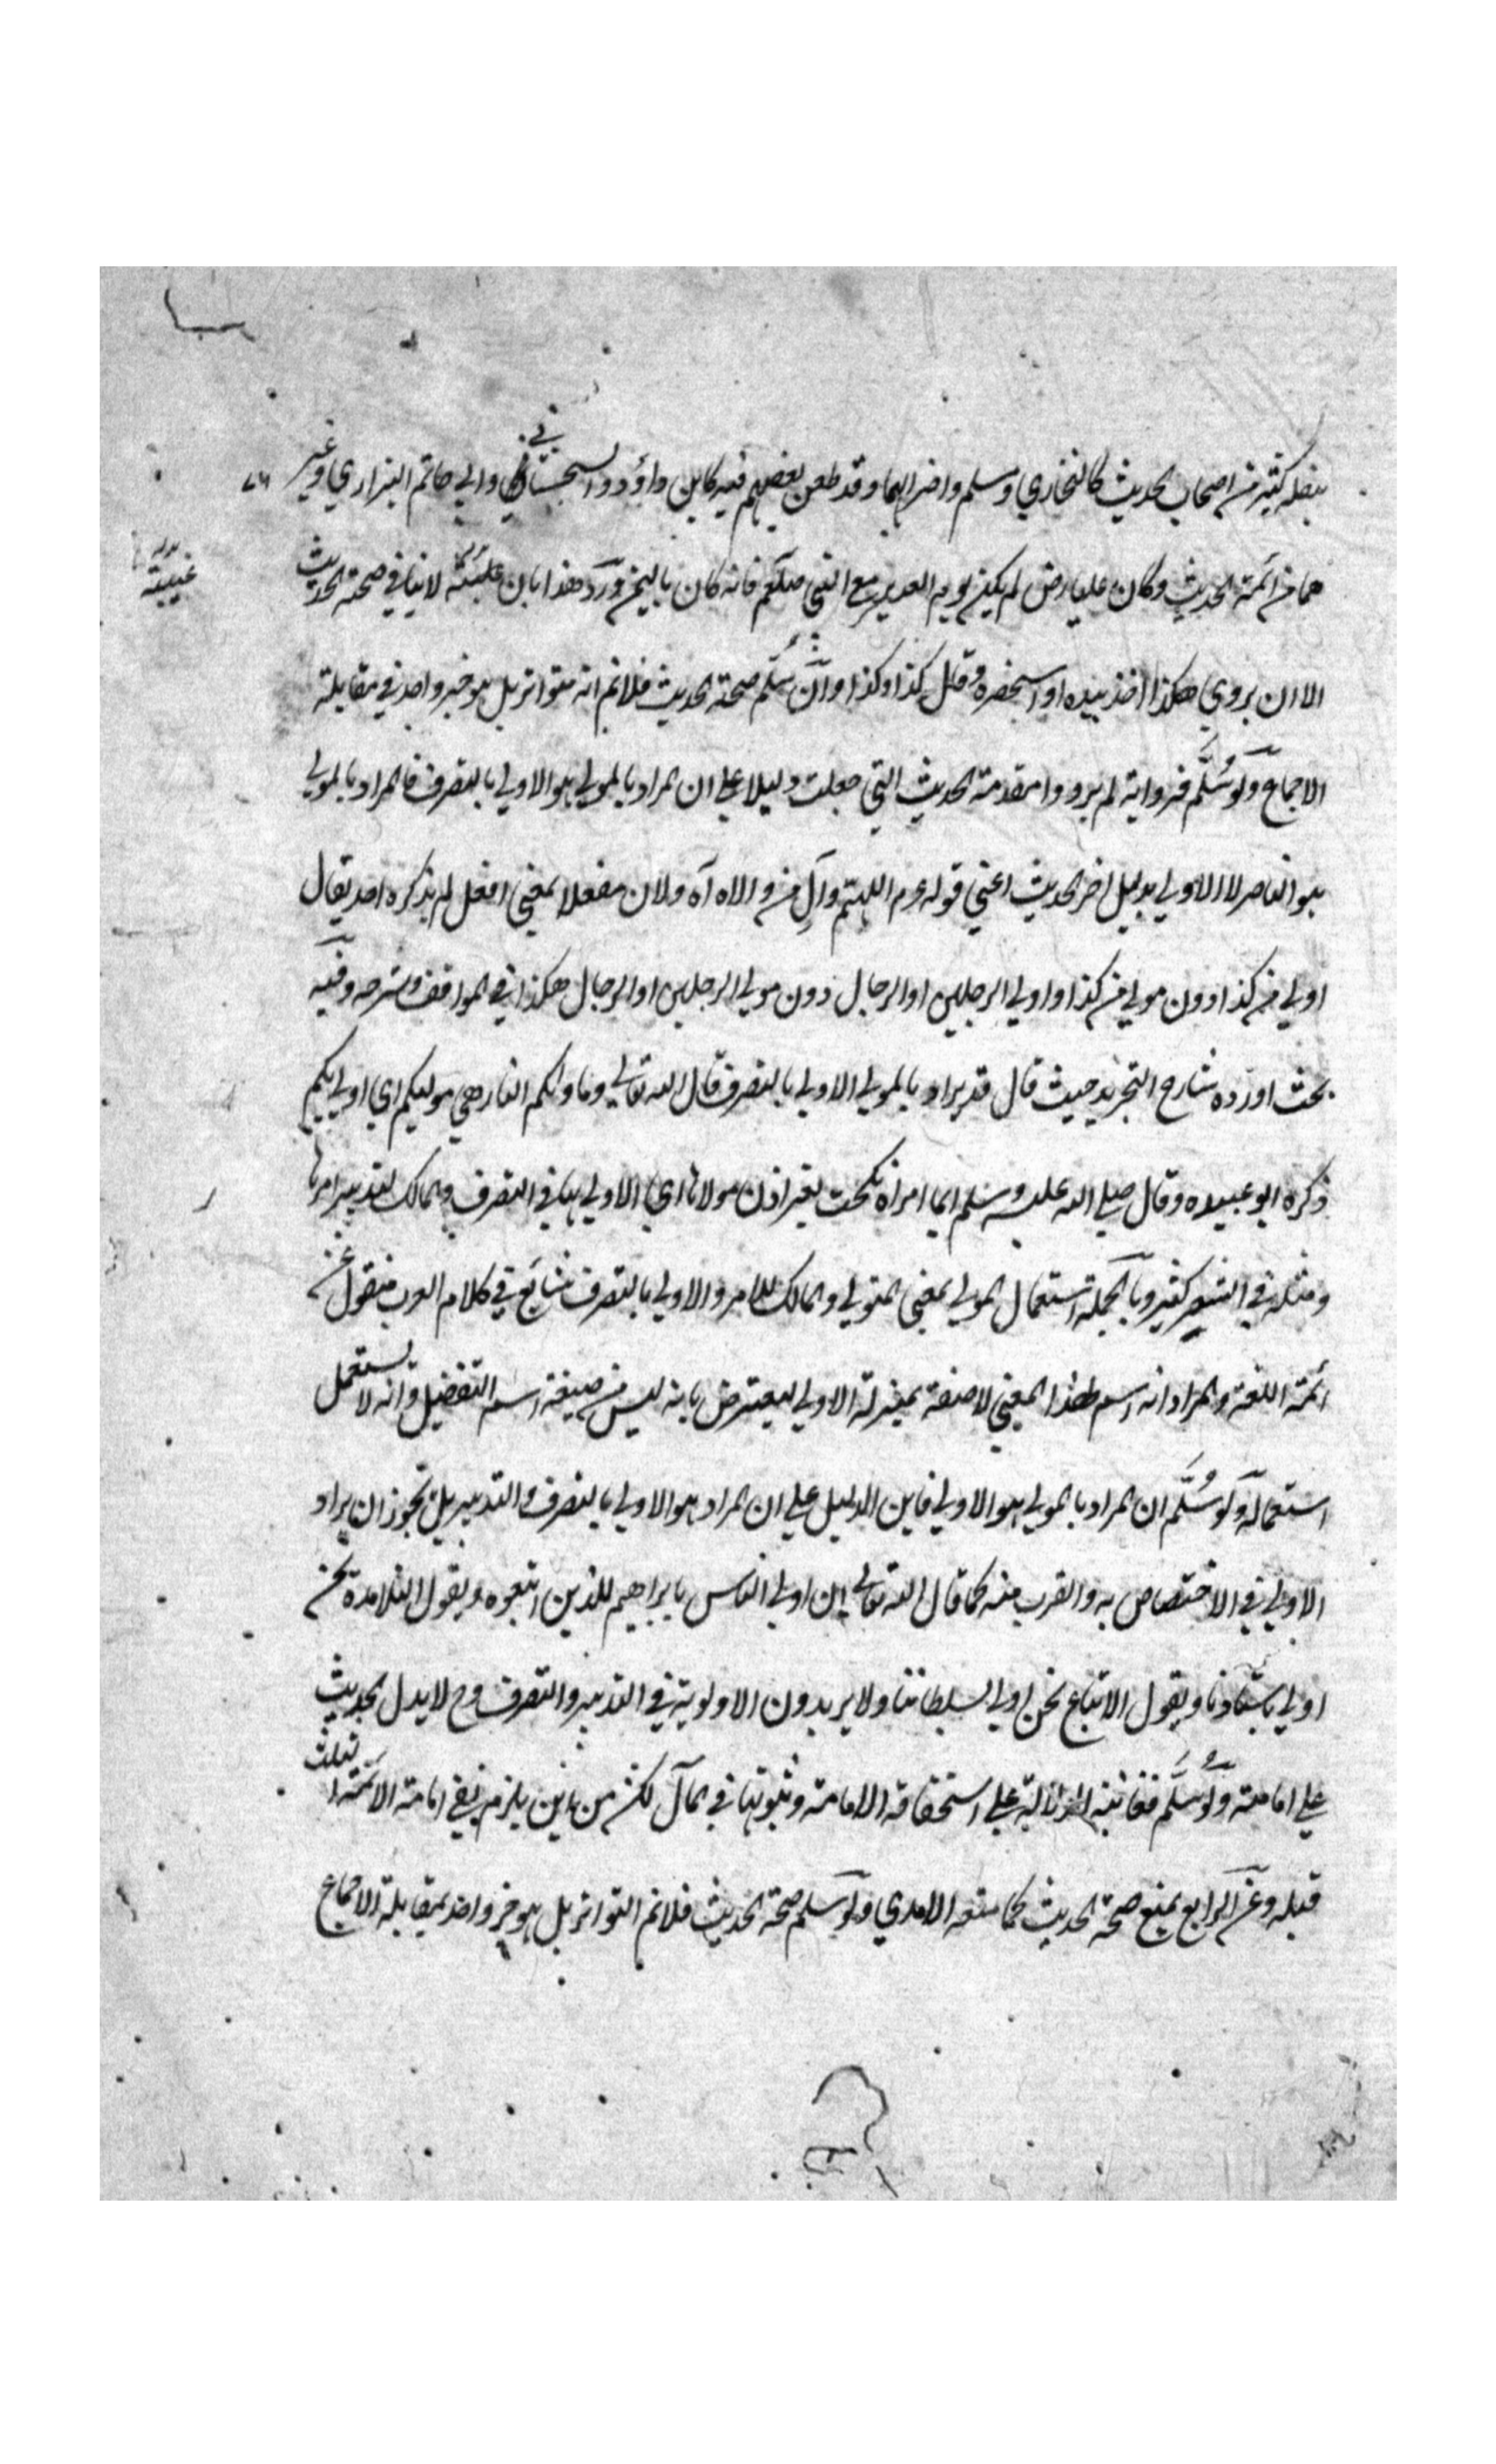 ينقله كثير من اصحاب الحديث كالبخاري ومسلم واضرابهما وقد طعن بعضهم فيه كابن داؤد السجستاني وابي حاتم الرازي وغير
هما من ائمة الحديث وكان عليا رض لم يكن يوم الغدير مع النبي صلعم فانه كان باليمن ورد هذا بان غيبته لا ينافي صحة الحديث
غيبيته
الا ان يروي هكذا اخذ بيده او استحضره وقال كذا وكذا وان سلم صحة الحديث فلا نم انه متواتر بل هو خبر واحد في مقابلة
الاجماع ولو سلم فرواية لم يرووا مقدمة الحديث التي جعلت دليلا علي ان المراد بالمولي هو الاولي بالتصرف فالمراد بالمولي
هو الناصر لا الاولي بدليل اخر الحديث اعني قوله عم اللهم وال من والاه آه ولان مفعلا بمعني افعل لم يذكره احد يقال
اولي من كذا دون مولي من كذا واولي الرجلين او الرجال دون مولي الرجلين او الرجال هكذا في المواقف وشرحه وفيه
بحث اورده شارح التجريد حيث قال قد يراد بالمولي الاولي بالتصرف قال الله تعالي وماوٰكم النار هي موليكم اي اولي بكم
ذكره ابو عبيده وقال صلي الله عليه وسلم ايما امراة نكحت بغير اذن مولاها اي الاولي بها في التصرف والمالك لتدبير امرها
ومثله في الشعر كثير وبالجملة استعمال المولي بمعني المتولي والمالك للامر والاولي بالتصرف شايع في كلام العرب منقول عن
ائمة اللغة والمراد انه اسم لهذا المعني لا صفة بمنزلة الاولي ليعترض بانه ليس من صيغة اسم التفضيل وانه لا يستعمل
استعماله ولو سلم ان المراد بالمولي هو الاولي فاين الدليل علي ان المراد هو الاولي بالتصرف والتدبير بل يجوز ان يراد
الاولي في الاختصاص به والقرب منه كما قال الله تعالي ان اولي الناس بابراهيم للذين اتبعوه ويقول التلامذة نحن
اولي باستاذنا ويقول الاتباع نحن اولي بسلطاننا ولا يريدون الاولوية في التدبير والتصرف وح لا يدل الحديث
علي امامته ولو سلم فغايته الدلالة علي استحقاقه الامامة وثبوتها في المآل لكن من اين يلزم نفي امامة الائمة الثلث
قبله وعن الرابع بمنع صحة الحديث كما منعه الامدي ولو سلم صحة الحديث فلا نم التواتر بل هو خبر واحد بمقابلة الاجماع